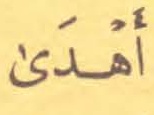 أَهْدَىٰ